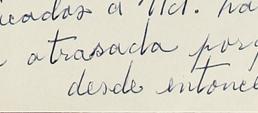 icadas a Ud. ha
atrasada porq
desde entonce